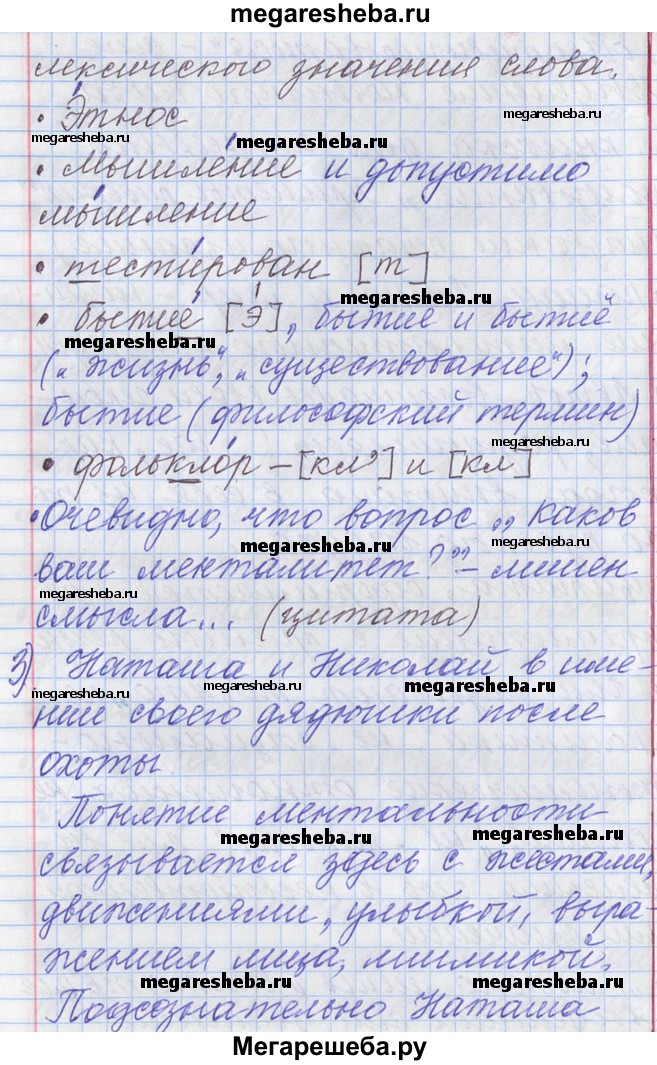 megaresheba.ru
лексического значения слова.
• Э́тнос
megaresheba.ru
megaresheba.ru
megaresheba.ru
• мышле́ние и допустимо
мы́шление
• тести́рован [т]
megaresheba.ru
• бытие́ [э́], бытие и бытиё
megaresheba.ru
(„жизнь", „существование");
бытие (философский термин)
megaresheba.ru
• фолькло́р – [кл'] и [кл]
• Очевидно, что вопрос „каков
megaresheba.ru
megaresheba.ru
ваш менталитет?" – лишен
megaresheba.ru
смысла... (цитата)
3) Наташа и Николай в име-
megaresheba.ru
megaresheba.ru
megaresheba.ru
megaresheba.ru
нии своего дядюшки после
охоты.
Понятие ментальности
megaresheba.ru
megaresheba.ru
связывается здесь с жестами,
движениями, улыбкой, выра-
жением лица, мимикой.
megaresheba.ru
megaresheba.ru
Подсознательно Наташа
Мегарешеба.ру